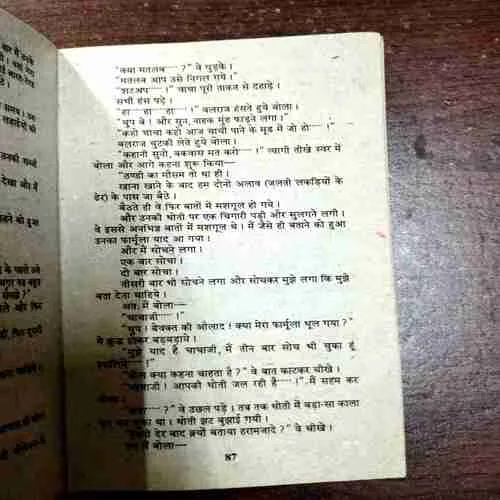 "क्या मतलब----?" वे घुड़के।
"मतलब आप उसे निगल गये।"
"शटअप----।" चाचा पूरी ताकत से दहाड़े।
सभी हंस पड़े।
"हा----हा----हा----!" बलराज हंसते हुये बोला।
"चुप बे। और सुन, नाहक मुंह फाड़ने लगा।"
"कहो चाचा कहो आज चाची पाने के मूड में जो हो----।"
बलराज चुटकी लेते हुये बोला।
"कहानी सुनो, बकवास मत करो----।" त्यागी तीखे स्वर में
बोला और आगे कहना शुरू किया—
"ठण्डी का मौसम तो था ही।
खाना खाने के बाद हम दोनों अलाव (जलती लकड़ियों के
ढेर) के पास जा बैठे।
बैठते ही वे फिर बातों में मशगूल हो गये।
और उनकी धोती पर एक चिंगारी पड़ी और सुलगने लगी।
वे इससे अनभिज्ञ बातों में मशगूल थे। मैं जैसे ही बताने को हुआ
उनका फार्मूला याद आ गया।
और मैं सोचने लगा।
एक बार सोचा।
दो बार सोचा।
तीसरी बार भी सोचने लगा और सोचकर मुझे लगा कि मुझे
बता देना चाहिये।
अतः मैं बोला—
"चाचाजी----।"
"चुप। बेवक्त की औलाद। क्या मेरा फार्मूला भूल गया?"
वे क्रुद्ध होकर बड़बड़ाये।
"मुझे याद है चाचाजी, मैं तीन बार सोच भी चुका हूं
"बोल क्या कहना चाहता है?" वे बात काटकर चीखे।
"चाचाजी। आपकी धोती जल रही है----।" मैं सहम कर
"क्या----?" वे उछल पड़े। तब तक धोती में बड़ा-सा काला
चुका था। धोती झट बुझाई गयी।
"इतनी देर बाद क्यों बताया हरामजादे?" वे चीखे।
मैं बोला—
87